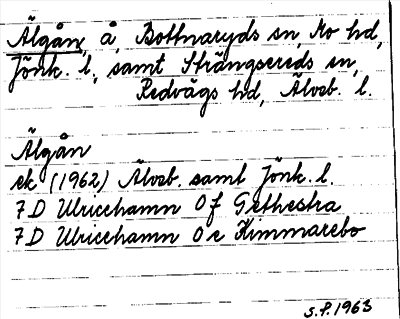 Älgån, å, Bottnaryds sn, Mo hd,
Jönk. l, samt Strängsereds sn,
Redvägs hd, Älvsb. l.
Älgån
ek (1962) Älvsb. samt Jönk. l.
7 D Ulricehamn 0 f Gethestra
7 D Ulricehamn 0 e Kimmarebo
S.P. 1963